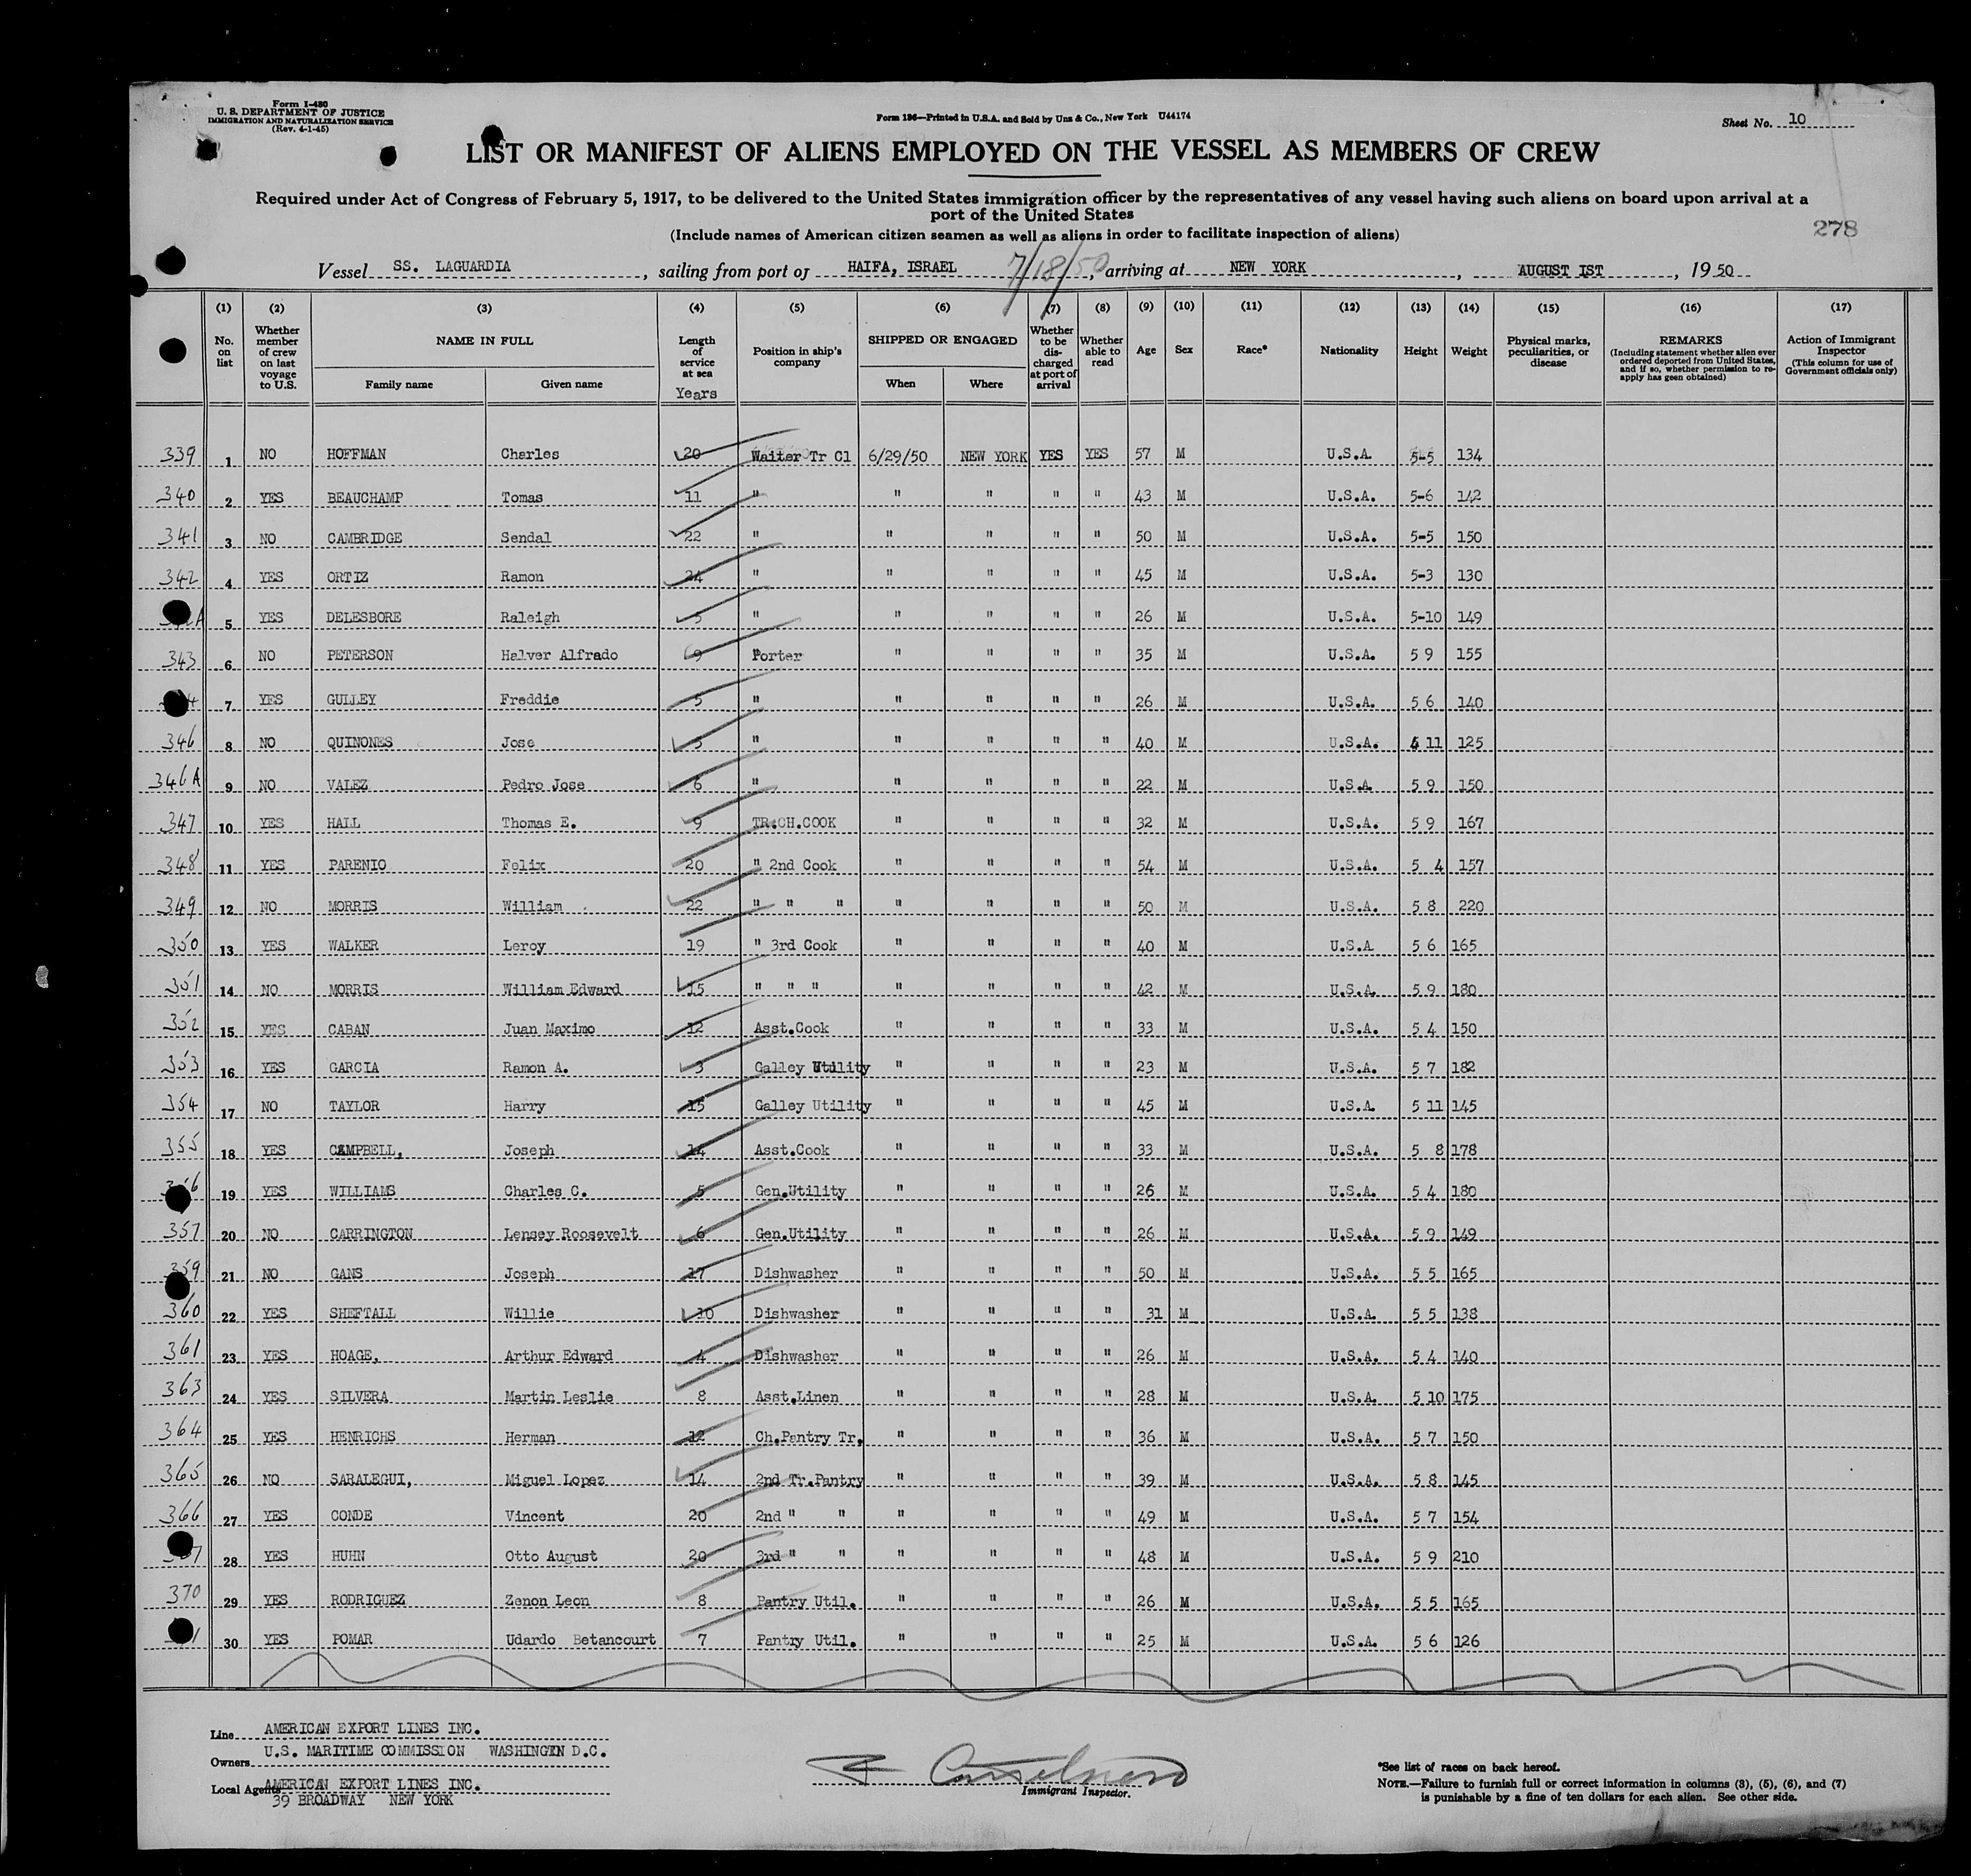 Form I-480
U. S. DEPARTMENT OF JUSTICE
IMMIGRATION AND NATURALIZATION SERVICE
(Rev. 4-1-45)
Form 186—Printed in U.S.A. and Sold by Unz & Co., New York U44174
Sheet No. 10
LIST OR MANIFEST OF ALIENS EMPLOYED ON THE VESSEL AS MEMBERS OF CREW
Required under Act of Congress of February 5, 1917, to be delivered to the United States immigration officer by the representatives of any vessel having such aliens on board upon arrival at a
port of the United States
(Include names of American citizen seamen as well as aliens in order to facilitate inspection of aliens)
278
Vessel SS. LAGUARDIA, sailing from port of HAIFA, ISRAEL 7/18/50, arriving at NEW YORK, AUGUST IST, 1950
(1) (2) (3) (4) (5) (6) (7) (8) (9) (10) (11) (12) (13) (14) (15) (16) (17)
No. on list
Whether member of crew on last voyage to U.S.
NAME IN FULL
Family name
Given name
Length of service at sea
Years
Position in ship's company
SHIPPED OR ENGAGED
When
Where
Whether to be discharged at port of arrival
Whether able to read
Age
Sex
Race*
Nationality
Height
Weight
Physical marks, peculiarities, or disease
REMARKS
(Including statement whether alien ever ordered deported from United States, and if so, whether permission to re-apply has geen obtained)
Action of Immigrant Inspector
(This column for use of Government officials only)
339 1 NO HOFFMAN Charles 20 Waiter Tr Cl 6/29/50 NEW YORK YES YES 57 M U.S.A. 5-5 134
340 2 YES BEAUCHAMP Tomas 11 " " " " " 43 M U.S.A. 5-6 142
341 3 NO CAMBRIDGE Sendal 22 " " " " " 50 M U.S.A. 5-5 150
342 4 YES ORTIZ Ramon 24 " " " " " 45 M U.S.A. 5-3 130
5 YES DELESBORE Raleigh 5 " " " " " 26 M U.S.A. 5-10 149
343 6 NO PETERSON Halver Alfrado 9 Porter " " " " 35 M U.S.A. 5 9 155
7 YES GULLEY Freddie 5 " " " " " 26 M U.S.A. 5 6 140
346 8 NO QUINONES Jose 5 " " " " " 40 M U.S.A. 11 125
346A 9 NO VALEZ Pedro Jose 6 " " " " " 22 M U.S.A 5 9 150
347 10 YES HALL Thomas E. 9 TR.CH.COOK " " " " 32 M U.S.A. 5 9 167
348 11 YES PARENIO Felix 20 " 2nd Cook " " " " 54 M U.S.A. 5 4 157
349 12 NO MORRIS William 22 " " " " " " " 50 M U.S.A. 5 8 220
350 13 YES WALKER Leroy 19 " 3rd Cook " " " " 40 M U.S.A 5 6 165
351 14 NO MORRIS William Edward 15 " " " " " " " 42 M U.S.A. 5 9 180
352 15 YES CABAN Juan Maximo 12 Asst.Cook " " " " 33 M U.S.A. 5 4 150
353 16 YES GARCIA Ramon A. 3 Galley Utility " " " " 23 M U.S.A. 5 7 182
354 17 NO TAYLOR Harry 15 Galley Utility " " " " 45 M U.S.A. 5 11 145
355 18 YES CAMPBELL, Joseph 14 Asst.Cook " " " " 33 M U.S.A. 5 8 178
19 YES WILLIAMS Charles C. 5 Gen.Utility " " " " 26 M U.S.A. 5 4 180
357 20 NO CARRINGTON Lensey Roosevelt 6 Gen.Utility " " " " 26 M U.S.A. 5 9 149
359 21 NO GANS Joseph 17 Dishwasher " " " " 50 M U.S.A. 5 5 165
360 22 YES SHEFTALL Willie 10 Dishwasher " " " " 31 M U.S.A. 5 5 138
361 23 YES HOAGE, Arthur Edward 4 Dishwasher " " " " 26 M U.S.A. 5 4 140
363 24 YES SILVERA Martin Leslie 8 Asst.Linen " " " " 28 M U.S.A. 5 10 175
364 25 YES HENRICHS Herman 12 Ch.Pantry Tr. " " " " 36 M U.S.A. 5 7 150
365 26 NO SARALEGUI, Miguel Lopez 14 2nd Tr.Pantry " " " " 39 M U.S.A. 5 8 145
366 27 YES CONDE Vincent 20 2nd " " " " " " 49 M U.S.A. 5 7 154
28 YES HUHN Otto August 20 3rd " " " " " " 48 M U.S.A. 5 9 210
370 29 YES RODRIGUEZ Zenon Leon 8 Pantry Util. " " " " 26 M U.S.A. 5 5 165
30 YES POMAR Udardo Betancourt 7 Pantry Util. " " " " 25 M U.S.A. 5 6 126
Line AMERICAN EXPORT LINES INC.
Owners U.S. MARITIME COMMISSION WASHINGTN D.C.
Local Agents AMERICAN EXPORT LINES INC.
39 BROADWAY NEW YORK
Immigrant Inspector.
*See list of races on back hereof.
NOTE.—Failure to furnish full or correct information in columns (3), (5), (6), and (7)
is punishable by a fine of ten dollars for each alien. See other side.